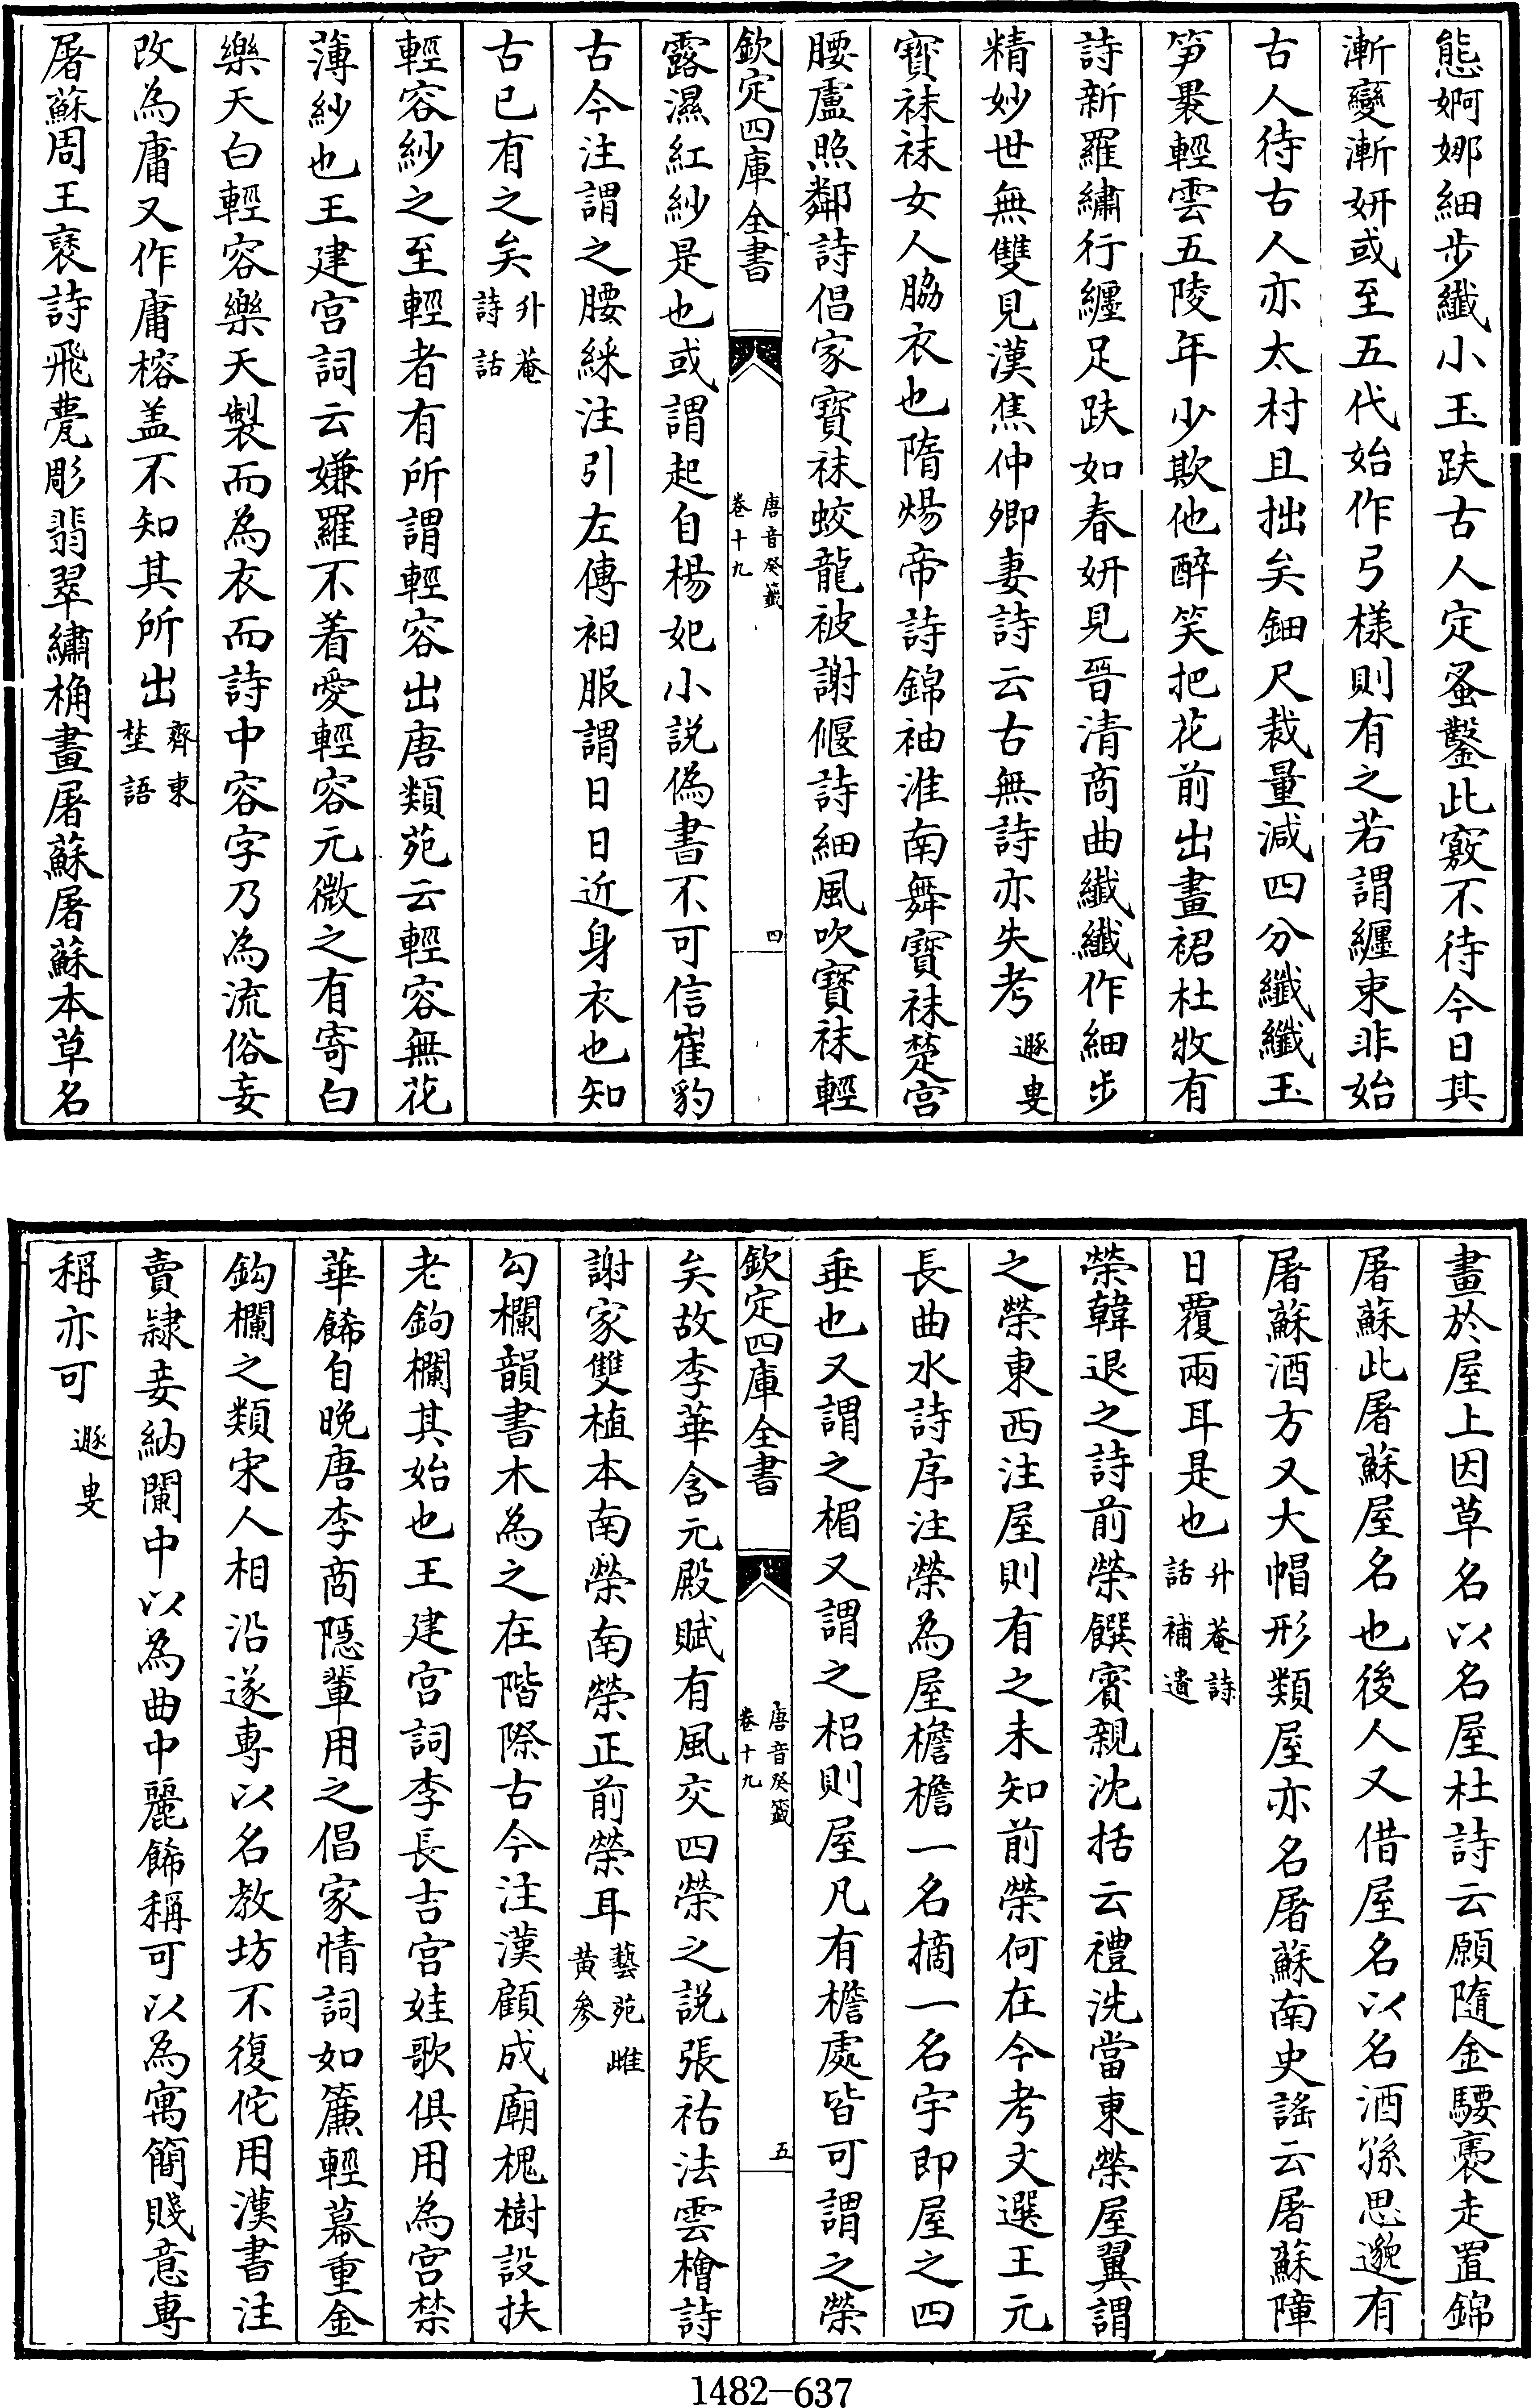 態婀娜細步纖小玉趺古人定蚤鑿此竅不待今日其
漸變漸妍或至五代始作弓樣則有之若謂纒束非始
古人待古人亦太村且拙矣鈿尺裁量減四分纖纖玉
笋裹輕雲五陵年少欺他醉笑把花前出畫裙杜牧有
詩新羅繡行纒足趺如春妍見晉清商曲纖纖作細步
精妙世無雙見漢焦仲卿妻詩云古無詩亦失考 遯叟
寳袜袜女人脇衣也隋煬帝詩錦袖淮南舞寳袜楚宫
腰盧照鄰詩倡家寳袜蛟龍被謝偃詩細風吹寳袜輕
欽定四庫全書 唐音癸籖 卷十九 四
露濕紅紗是也或謂起自楊妃小説偽書不可信崔豹
古今注謂之腰綵注引左傳衵服謂日日近身衣也知
古已有之矣 升菴詩話
輕容紗之至輕者有所謂輕容出唐類苑云輕容無花
薄紗也王建宫詞云嫌羅不着愛輕容元微之有寄白
樂天白輕容樂天製而為衣而詩中容字乃為流俗妄
改為庸又作庸榕盖不知其所出 齊東埜語
屠蘇周王褒詩飛甍彫翡翠繡桷畫屠蘇屠蘇本草名
畫於屋上因草名以名屋杜詩云願隨金騕褭走置錦
屠蘇此屠蘇屋名也後人又借屋名以名酒孫思邈有
屠蘇酒方又大帽形類屋亦名屠蘇南史謠云屠蘇障
日覆兩耳是也 升菴詩話補遺
榮韓退之詩前榮饌賓親沈括云禮洗當東榮屋翼謂
之榮東西注屋則有之未知前榮何在今考文選王元
長曲水詩序注榮為屋檐檐一名摘一名宇即屋之四
垂也又謂之楣又謂之梠則屋凡有檐處皆可謂之榮
欽定四庫全書 唐音癸籖 卷十九 五
矣故李華含元殿賦有風交四榮之説張祜法雲檜詩
謝家雙植本南榮南榮正前榮耳 藝苑雌黄參
勾欄韻書木為之在階際古今注漢顧成廟槐樹設扶
老鉤欄其始也王建宫詞李長吉宫娃歌俱用為宫禁
華餙自晚唐李商隱輩用之倡家情詞如簾輕幕重金
鈎欄之類宋人相沿遂專以名教坊不復佗用漢書注
賣隷妾納闌中以為曲中麗餙稱可以為寓簡賤意專
稱亦可 遯叟
1482-637